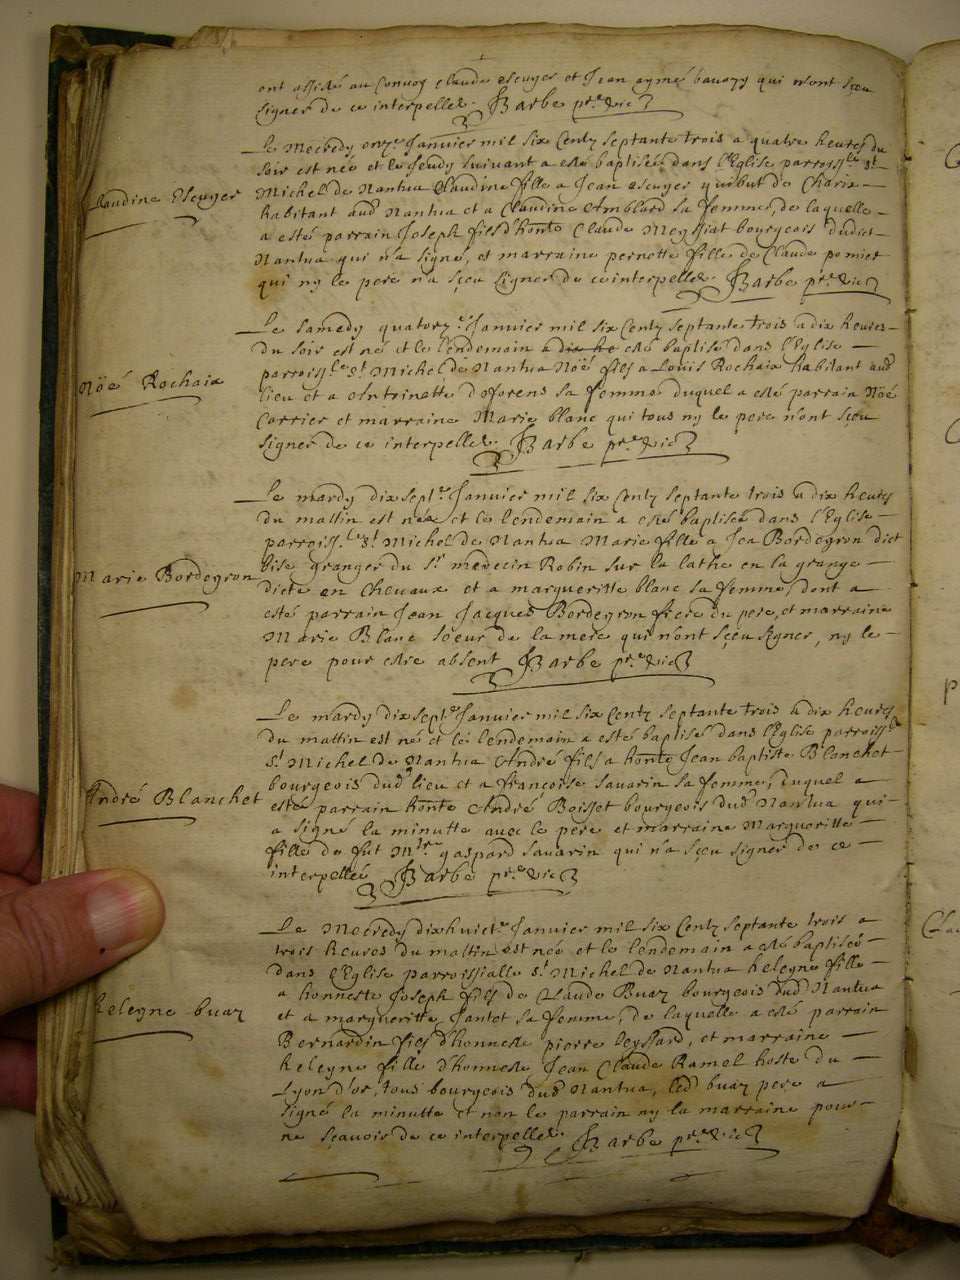 ont assisté au convoy claude escuyer et Jean aymé bauazy qui n'ont sçeu
signer de ce interpellez. Barbe pre vic
Claudine Escuyer
Le Mecredy onze Janvier mil six Centz septante trois a quatre heures du
soir est née et le Jeudy suivant a esté baptisée dans l'Eglise parroisslle st
Michel de Nantua Claudine fille a Jean escuyer quibut de Charix
habitant aud Nantua et a Claudine Amblard sa femme, de laquelle
a esté parrain Joseph fils d'honte Claude Meyssiat bourgeois dudict
Nantua qui n'a signé, et marraine pernette fille de Claude pomier
qui ny le pere n'a sçeu signer de ce interpellez. Barbe pre vic
Nöé Rochaix
Le samedy quatorze Janvier mil six Centz septante trois a dix heures
du soir est né et le lendemain a dix he esté baptisé dans l'Eglise
parroisslle st Michel de Nantua Nöé fils a Louis Rochaix habitant aud
lieu et a Antoinette d'oforens sa femme duquel a esté parrain Nöé
Carrier et marraine Marie blanc qui tous ny le pere n'ont sçeu
signer de ce interpellez. Barbe pre vic
Marie Bordegron
Le mardy dix sept Janvier mil six Centz septante trois a dix heures
du mattin est née et le lendemain a esté baptisée dans l'Eglise
parroisslle st Michel de Nantua Marie fille a Jea Bordegron dict
bise granger du sr medecin Robin sur la lathe en la grange
dicte en Chevaux et a margueritte blanc sa femme, dont a
esté parrain Jean Jacques Bordegron frere du pere, et marraine
Marie Blanc soeur de la mere qui n'ont sçeu signer, ny le
pere pour estre absent Barbe pre vic
André Blanchet
Le mardy dix sept Janvier mil six Centz septante trois a dix heures
du mattin est né et le lendemain a esté baptisé dans l'Eglise parroisslle
st Michel de Nantua André fils a honte Jean baptiste Blanchet
bourgeois dud lieu et a françoise savarin sa femme, duquel a
esté parrain honte André Boisset bourgeois dud Nantua qui
a signé la minutte avec le pere et marraine Margueritte
fille de fut Mtre gaspard savarin qui n'a sçeu signer de ce
interpellée Barbe pre vic
heleyne buaz
Le Mecredy dix huict Janvier mil six Centz septante trois a
trois heures du mattin est née et le lendemain a esté baptisée
dans l'Eglise parroissialle st Michel de Nantua heleyne fille
a honneste Joseph fils de Claude Buaz bourgeois dud Nantua
et a margueritte Jantet sa femme, de laquelle a esté parrain
Bernardin fils d'honneste pierre leyssard, et marraine
heleyne fille d'honneste Jean Claude Ramel hoste du
Lyon d'or, tous bourgeois dud Nantua, led buaz pere a
signé la minutte et non le parrain ny la marraine pour
ne sçavoir de ce interpellez. Barbe pre vic